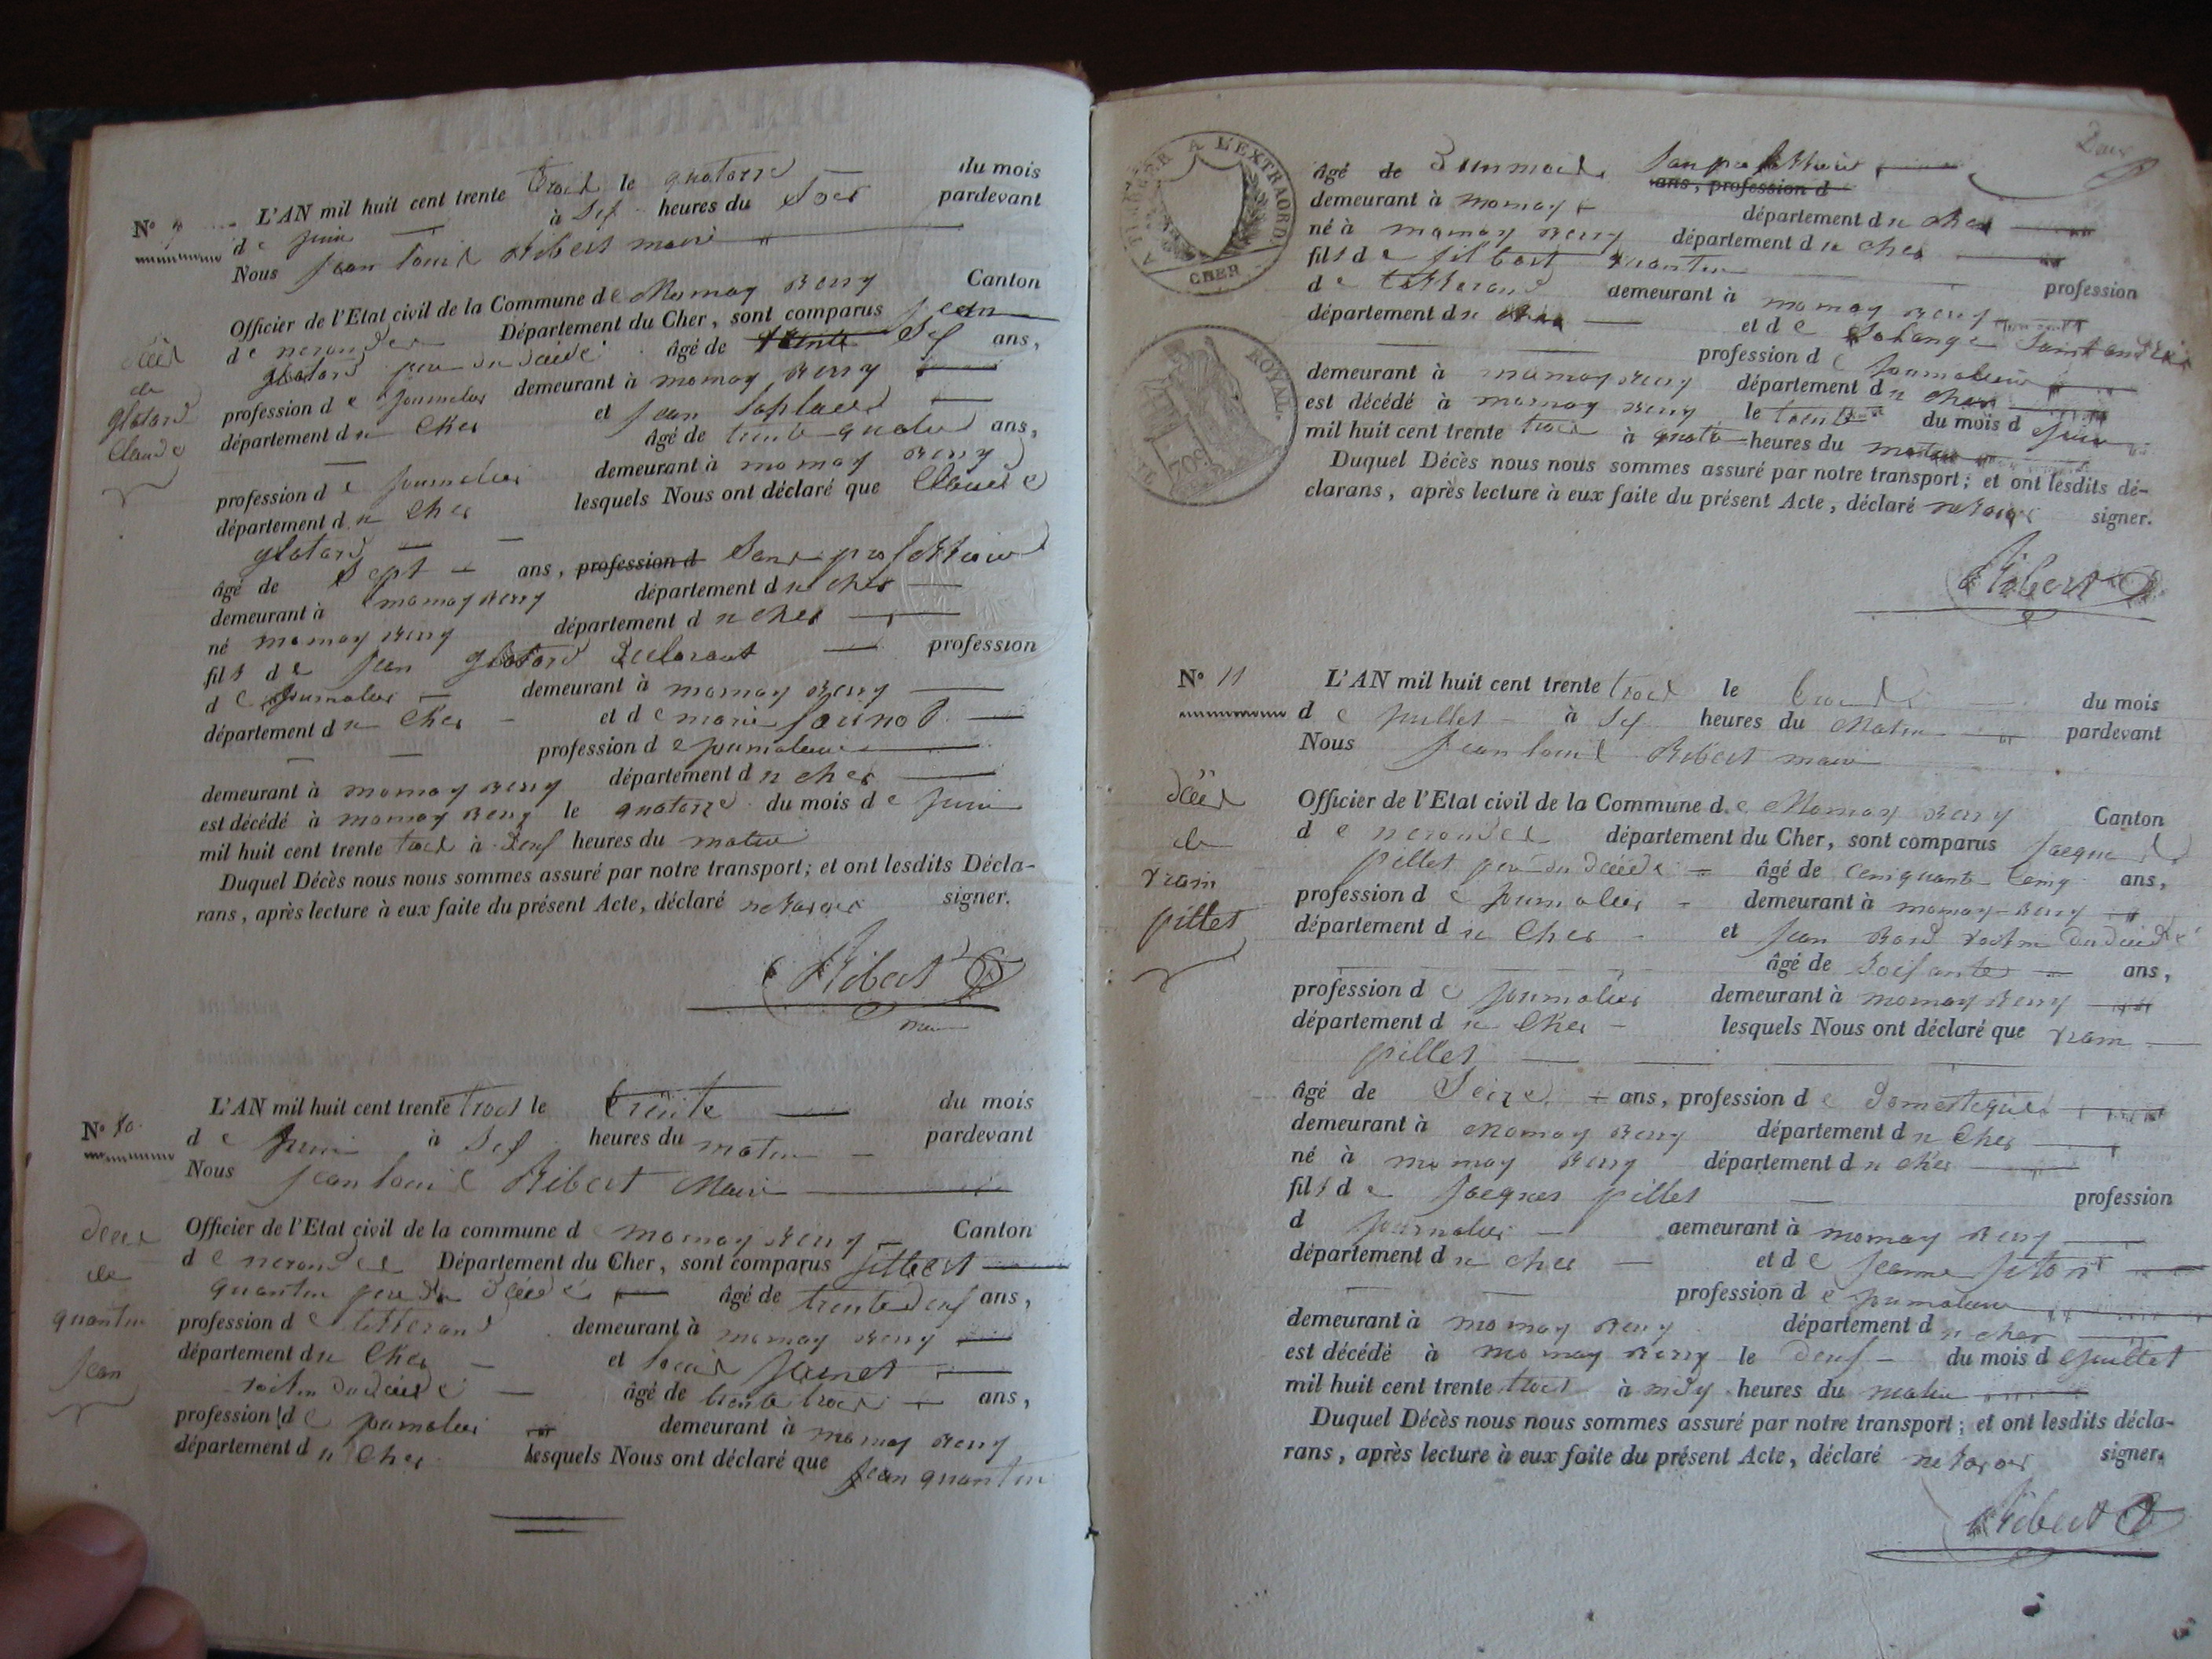 N° 9 L'AN mil huit cent trente trois le quatorze du mois
de juin à Sept heures du Soir pardevant
Nous jean louis Ribert maire
Officier de l'Etat civil de la Commune de Mornay Berry Canton
de nerondes Département du Cher, sont comparus jean
glotard pere du décédé âgé de trente Sept ans,
profession de journalier demeurant à mornay Berry
département du Cher et jean
âgé de trente quatre ans,
profession de journalier demeurant à mornay Berry
département du Cher lesquels Nous ont déclaré que Claude
glotard
âgé de Sept ans, profession d Sans profession
demeurant à mornay Berry département du cher
né mornay Berry département du cher
fils de jean glotard declarant profession
de journalier demeurant à mornay Berry
département du Cher et de marie
profession de journaliere
demeurant à mornay Berry département du cher
est décédé à mornay Berry le quatorze du mois de juin
mil huit cent trente trois à heures du matin
Duquel Décès nous nous sommes assuré par notre transport; et ont lesdits Décla-
rans, après lecture à eux faite du présent Acte, déclaré ne savoir signer.
Ribert
maire
décès
de
glotard
Claude
N° 10 L'AN mil huit cent trente trois le trente du mois
de juin à Sept heures du matin pardevant
Nous jean louis Ribert Maire
Officier de l'Etat civil de la commune de mornay Berry Canton
de nerondes Département du Cher, sont comparus
quantin pere du décédé âgé de trente deux ans,
profession de tisserand demeurant à mornay Berry
département du Cher et louis
voisin du décédé âgé de trente trois ans,
profession de journalier demeurant à mornay Berry
département du Cher lesquels Nous ont déclaré que jean quantin
décès
de
quantin
jean
âgé de un mois Sans profession ans, profession d
demeurant à mornay département du cher
né à mornay Berry département du cher
fils de quantin profession
de tisserand demeurant à mornay Berry
département du cher et de Solange
profession de journaliere
demeurant à mornay Berry département du cher
est décédé à mornay Berry le trente du mois de juin
mil huit cent trente trois à quatre heures du matin
Duquel Décès nous nous sommes assuré par notre transport; et ont lesdits dé-
clarans, après lecture à eux faite du présent Acte, déclaré ne savoir signer.
Ribert
A TIMBRER A L'EXTRAORD.
CHER
ROYAL.
N° 11 L'AN mil huit cent trente trois le trois du mois
de juillet à Sept heures du Matin pardevant
Nous jean louis Ribert maire
Officier de l'Etat civil de la Commune de Mornay Berry Canton
de nerondes département du Cher, sont comparus jacques
pillet pere du décédé âgé de cinquante cinq ans,
profession de journalier demeurant à mornay Berry
département du Cher et jean voisin du décédé
âgé de Soixante ans,
profession de journalier demeurant à mornay Berry
département du Cher lesquels Nous ont déclaré que vrain
pillet
âgé de Seize ans, profession de domestique
demeurant à Mornay Berry département du Cher
né à mornay Berry département du cher
fils de jacques pillet profession
d journalier demeurant à mornay Berry
département du cher et de jeanne
profession de journaliere
demeurant à mornay Berry département du cher
est décédé à mornay Berry le deux du mois de juillet
mil huit cent trente trois à heures du matin
Duquel Décès nous nous sommes assuré par notre transport; et ont lesdits décla-
rans, après lecture à eux faite du présent Acte, déclaré ne savoir signer.
Ribert
décès
de
vrain
pillet